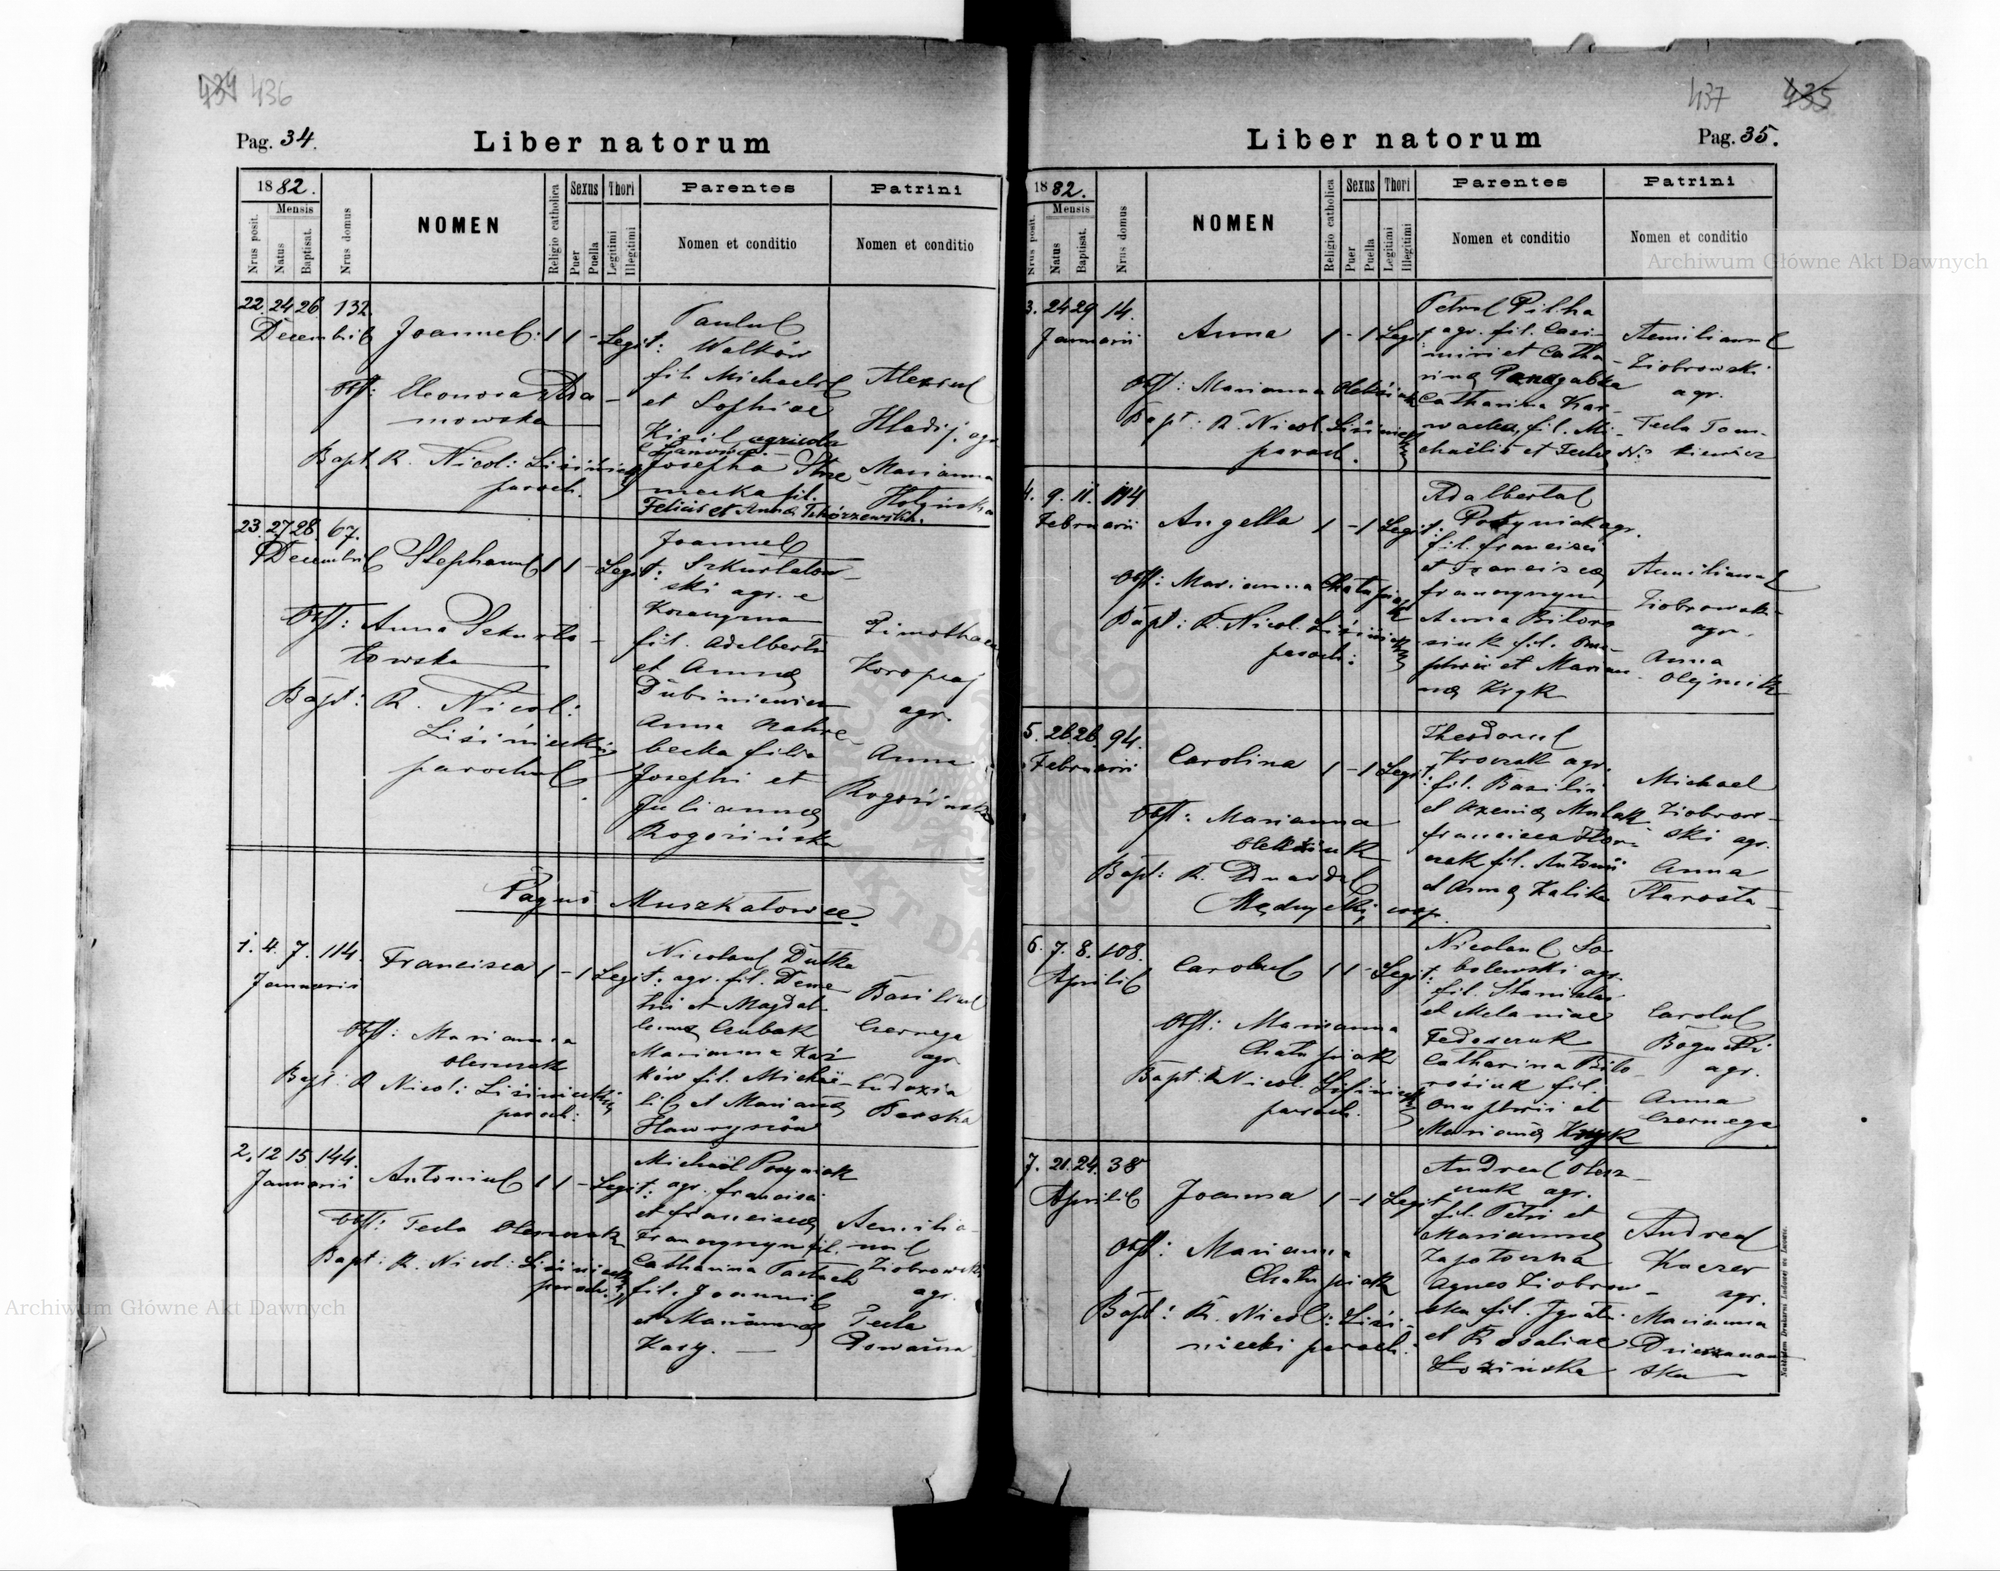 434 436
Pag. 34.
Liber natorum
1882.
Mensis
Nrus posit.
Natus
Baptisat.
Nrus domus
NOMEN
Religio catholica
Sexus
Puer
Puella
Thori
Legitimi
Illegitimi
Parentes
Nomen et conditio
Patrini
Nomen et conditio
22. 24 26 132
Decembris
Joannes 1 1 - Legit:
Obst: Eleonora
mowska
Bapt. R. Nicol: Lisiniecki
paroch.
Paulus
Walków
fil. Michaelis
et Sophiae
Kisil agricola
Josepha
mecka fil.
Felicis et Anna
Alexius
Hladij. agr.
Marianna
23. 27 28. 67.
Decembris
Stephanus 1 1 - Legit:
Obst: Anna Sekurło-
towska
Bapt: R. Nicol:
Lisiniecki
parochus
Joannes
Szkurłatow-
ski agr.
fil. Adelberti
et Annae
Dubiniewicz
Anna Nahre-
becka filia
Josephi et
Juliannae
Rogosińska
Timotheus
Koropaj
agr.
Anna
Rogosińska
Pagus Muszkatowce
1. 4. 7. 114.
Januarii
Francisca 1 - 1 Legit:
Obst: Marianna
Olenczuk
Bapt: R. Nicol: Lisiniecki
paroch:
Nicolaus Dutka
agr. fil. Deme-
trii et Magdal-
enae Czubak
Marianna Kaź-
ków fil. Michae-
lis et Mariannae
Hawrysiów
Basilius
Czernega
agr.
Eudoxia
Barska
2. 12 15 144.
Januarii
Antonius 1 1 - Legit:
Obst: Tecla Olenczuk
Bapt: R. Nicol: Lisiniecki
paroch.
Michael Posyniak
agr. francisci
et franciscae
fil.
Catharina
fil. Joannis
et Mariannae
Kasy.
Aemilia-
nus
Ziobrowski
agr.
Tecla
437 435
Liber natorum
Pag. 35.
1882.
Mensis
Nrus posit.
Natus
Baptisat.
Nrus domus
NOMEN
Religio catholica
Sexus
Puer
Puella
Thori
Legitimi
Illegitimi
Parentes
Nomen et conditio
Patrini
Nomen et conditio
3. 24 29 14.
Januarii
Anna 1 - 1 Legit
Obst: Marianna Oleksiuk
Bapt: R. Nicol. Lisiniecki
paroch.
Petrus Pilha
agr. fil. Casi-
miri et Catha-
rinae
Catharina Kar-
wacka, fil. Mi-
chaëlis et Teclae
Aemilianus
Ziobrowski
agr.
Tecla Tom-
kiewicz
4. 9. 11. 114
Februarii
Angella 1 - 1 Legit:
Obst: Marianna Chatupiak
Bapt: R. Nicol. Lisiniecki
paroch:
Adalbertus
agr.
fil. francisci
et Franciscae
Anna Biloro-
siuk fil. Onu-
phrii et Marian-
nae Kryk
Aemilianus
Ziobrowski
agr.
Anna
Olejnik
5. 26. 26. 94.
Februarii
Carolina 1 - 1 Legit:
Obst: Marianna
Oleksiuk
Bapt: R. Eduardus
coop.
Theodorus
agr.
fil. Basilii
et Axeniae
francisca
fil. Antonii
et Annae Kalika
Michael
Ziobrow-
ski agr.
Anna
Starosta
6. 7. 8. 108.
Aprilis
Carolus 1 1 - Legit.
Obst: Marianna
Chatupiak
Bapt: R. Nicol. Lisiniecki
paroch.
Nicolaus So-
bolewski agr.
fil. Stanislai
et Melaniae
Fedoszuk
Catharina Bilo-
rosiuk fil.
Onuphrii et
Mariannae Kryk
Carolus
Bogucki
agr.
Anna
Czernega
7. 21. 24. 38
Aprilis
Joanna 1 - 1 Legit
Obst: Marianna
Chatupiak
Bapt: R. Nicol: Lisi-
niecki paroch.
Andreas Olesz-
czuk agr.
fil. Petri et
Mariannae
Agnes Ziobrow-
ska fil. Ignatii
et Rosaliae
Łozińska
Andreas
Kaczor
agr.
Marianna
ska
Nakładem Drukarni Ludowej we Lwowie.
Archiwum Główne Akt Dawnych
Archiwum Główne Akt Dawnych